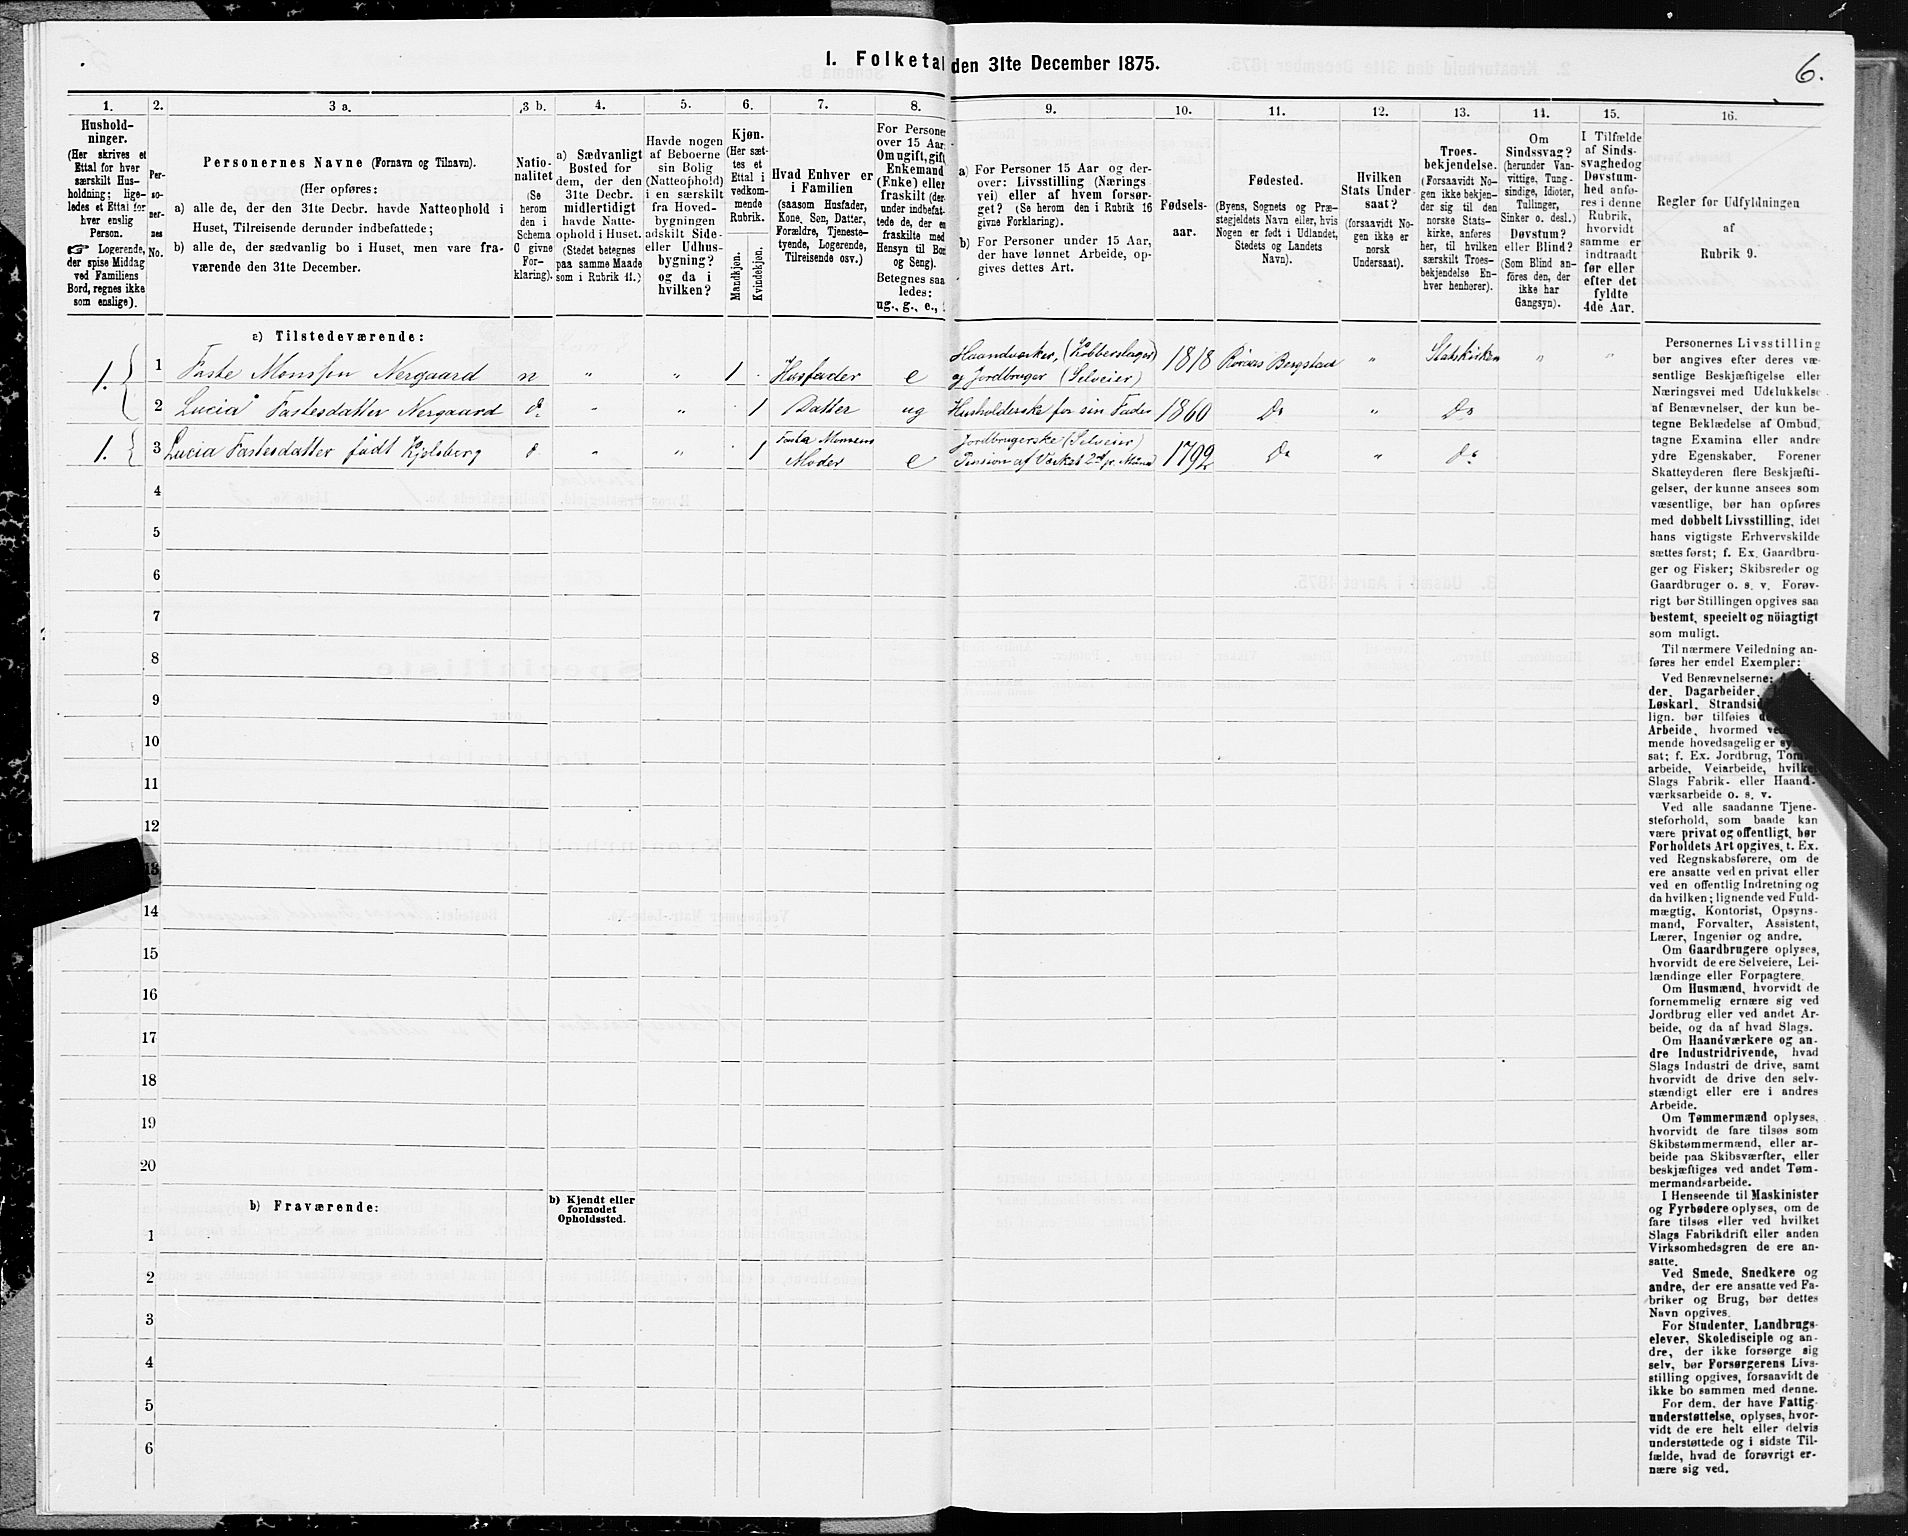 I. Folketal den 31te December 1875.
6.
1.
Hushold-
ninger.
(Her skrives et
Ettal for hver
særskilt Hus-
holdning; lige-
ledes et Ettal for
hver enslig
Person.
☞ Logerende,
der spise Middag
ved Familiens
Bord, regnes ikke
som enslige).
2.
Per-
so-
ner-
nes
No.
3 a.
Personernes Navne (Fornavn og Tilnavn).
(Her opføres:
a) alle de, der den 31te Decbr. havde Natteophold i
Huset, Tilreisende derunder indbefattede;
b) alle de, der sædvanlig bo i Huset, men vare fra-
værende den 31te December.
3 b.
Natio-
nalitet
(Se
herom
den i
Schema
C givne
For-
klaring).
4.
a) Sædvanligt
Bosted for
dem, der den
31te Decbr.
midlertidigt
havde Natte-
ophold i Huset.
(Stedet betegnes
paa samme Maade
som i Rubrik 11.)
5.
Havde nogen
af Beboerne
sin Bolig
(Natteophold)
i en særskilt
fra Hoved-
bygningen
adskilt Side-
eller Udhus-
bygning?
og da i
hvilken?
6.
Kjøn.
(Her sæt-
tes et
Ettal i
vedkom-
mende
Rubrik.
Mandkjøn.
Kvindekjøn.
7.
Hvad Enhver er
i Familien
(saasom Husfader,
Kone, Søn, Datter,
Forældre, Tjeneste-
tyende, Logerende,
Tilreisende osv.)
8.
For Personer
over 15 Aar:
Om ugift, gift
Enkemand
(Enke) eller
fraskilt (der-
under indbefat-
tede de, der ere
fraskilte med
Hensyn til Bord
og Seng).
Betegnes saa-
ledes:
ug., g., e.,
9.
a) For Personer 15 Aar og der-
over: Livsstilling (Nærings-
vei) eller af hvem forsør-
get? (Se herom den i Rubrik 16
givne Forklaring).
b) For Personer under 15 Aar,
der have lønnet Arbeide, op-
gives dettes Art.
10.
Fødsels-
aar.
11.
Fødested.
(Byens, Sognets og Præ-
stegjeldets Navn eller, hvis
Nogen er født i Udlandet,
Stedets og Landets
Navn).
12.
Hvilken
Stats Under-
saat?
(forsaavidt No-
gen ikke er
norsk
Undersaat).
13.
Troes-
bekjendelse.
(Forsaavidt No-
gen ikke bekjen-
der sig til den
norske Stats-
kirke, anføres
her, til hvilken
særskilt Troes-
bekjendelse En-
hver henhører).
14.
Om
Sindssvag?
(herunder Van-
vittige, Tung-
sindige, Idioter,
Tullinger,
Sinker o. desl.)
Døvstum?
eller Blind?
(Som Blind an-
føres den, der
ikke har
Gangsyn).
15.
I Tilfælde
af Sinds-
svaghed og
Døvstum-
hed anfø-
res i denne
Rubrik,
hvorvidt
samme er
indtraadt
før eller
efter det
fyldte
4de Aar.
16.
Regler for Udfyldningen
af
Rubrik 9.
a) Tilstedeværende:
1. 1 Faste Monssen Nergaard n " " 1 . Husfader e Haandværker, (Kobberslager) og Jordbruger (Selveier) 1818 Røraas Bergstad " Statskirken " "
2 Lucia Fastesdatter Nergaard do " " . 1 Datter ug Husholderske for sin Fader 1860 Do " Do
1. 3 Lucia Fastesdatter født Kjelsberg d " " . 1 Faste Monsens Moder e Jordbrugerske (Selveier) Pension af Værket 2 pr. Maaned 1792 Do " Do
4
5
6
7
8
9
10
11
12
13
14
15
16
17
18
19
20
b) Fraværende:
b) Kjendt eller
formodet
Opholdssted.
1
2
3
4
5
6
Personernes Livsstilling
bør angives efter deres væ-
sentlige Beskjæftigelse eller
Næringsvei med Udelukkelse
af Benævnelser, der kun be-
tegne Beklædelse af Ombud,
tagne Examina eller andre
ydre Egenskaber. Forener
Skatteyderen flere Beskjæfti-
gelser, der kunne ansees som
væsentlige, bør han opføres
med dobbelt Livsstilling, idet
hans vigtigste Erhvervskilde
sættes først; f. Ex. Gaardbru-
ger og Fisker; Skibsreder og
Gaardbruger o. s. v. Forøv-
rigt bør Stillingen opgives saa
bestemt, specielt og nöiagtigt
som muligt.
Til nærmere Veiledning an-
føres her endel Exempler:
Ved Benævnelserne:
der, Dagarbeider,
Løskarl, Strandsid
lign. bør tilføies
Arbeide, hvormed
mende hovedsagelig er
sat; f. Ex. Jordbrug, Tøm
arbeide, Veiarbeide, hvilke
Slags Fabrik- eller Haand-
værksarbeide o. s. v.
Ved alle saadanne Tjene-
steforhold, som baade kan
være privat og offentligt, bør
Forholdets Art opgives, t. Ex.
ved Regnskabsførere, om de
ere ansatte ved en privat eller
ved en offentlig Indretning og
da hvilken; lignende ved Fuld-
mægtig, Kontorist, Opsyns-
mand, Forvalter, Assistent,
Lærer, Ingeniør og andre.
Om Gaardbrugere oplyses,
hvorvidt de ere Selveiere, Lei-
lændinge eller Forpagtere.
Om Husmænd, hvorvidt de
fornemmelig ernære sig ved
Jordbrug eller ved andet Ar-
beide, og da af hvad Slags.
Om Haandværkere og an-
dre Industridrivende, hvad
Slags Industri de drive, samt
hvorvidt de drive den selv-
stændigt eller ere i andres
Arbeide.
Om Tømmermænd oplyses,
hvorvidt de fare tilsøs som
Skibstømmermænd, eller ar-
beide paa Skibsværfter, eller
beskjæftiges ved andet Tøm-
mermandsarbeide.
I Henseende til Maskinister
og Fyrbødere oplyses, om de
fare tilsøs eller ved hvilket
Slags Fabrikdrift eller anden
Virksomhedsgren de ere an-
satte.
Ved Smede, Snedkere og
andre, der ere ansatte ved Fa-
briker og Brug, bør dettes
Navn opgives.
For Studenter, Landbrugs-
elever, Skoledisciple og an-
dre, der ikke forsørge sig
selv, bør Forsørgerens Livs-
stilling opgives, forsaavidt de
ikke bo sammen med denne.
For dem, der have Fattig-
understøttelse, oplyses, hvor-
vidt de ere helt eller delvis
understøttede og i sidste Til-
fælde, hvad de forøvrigt er-
nære sig ved.